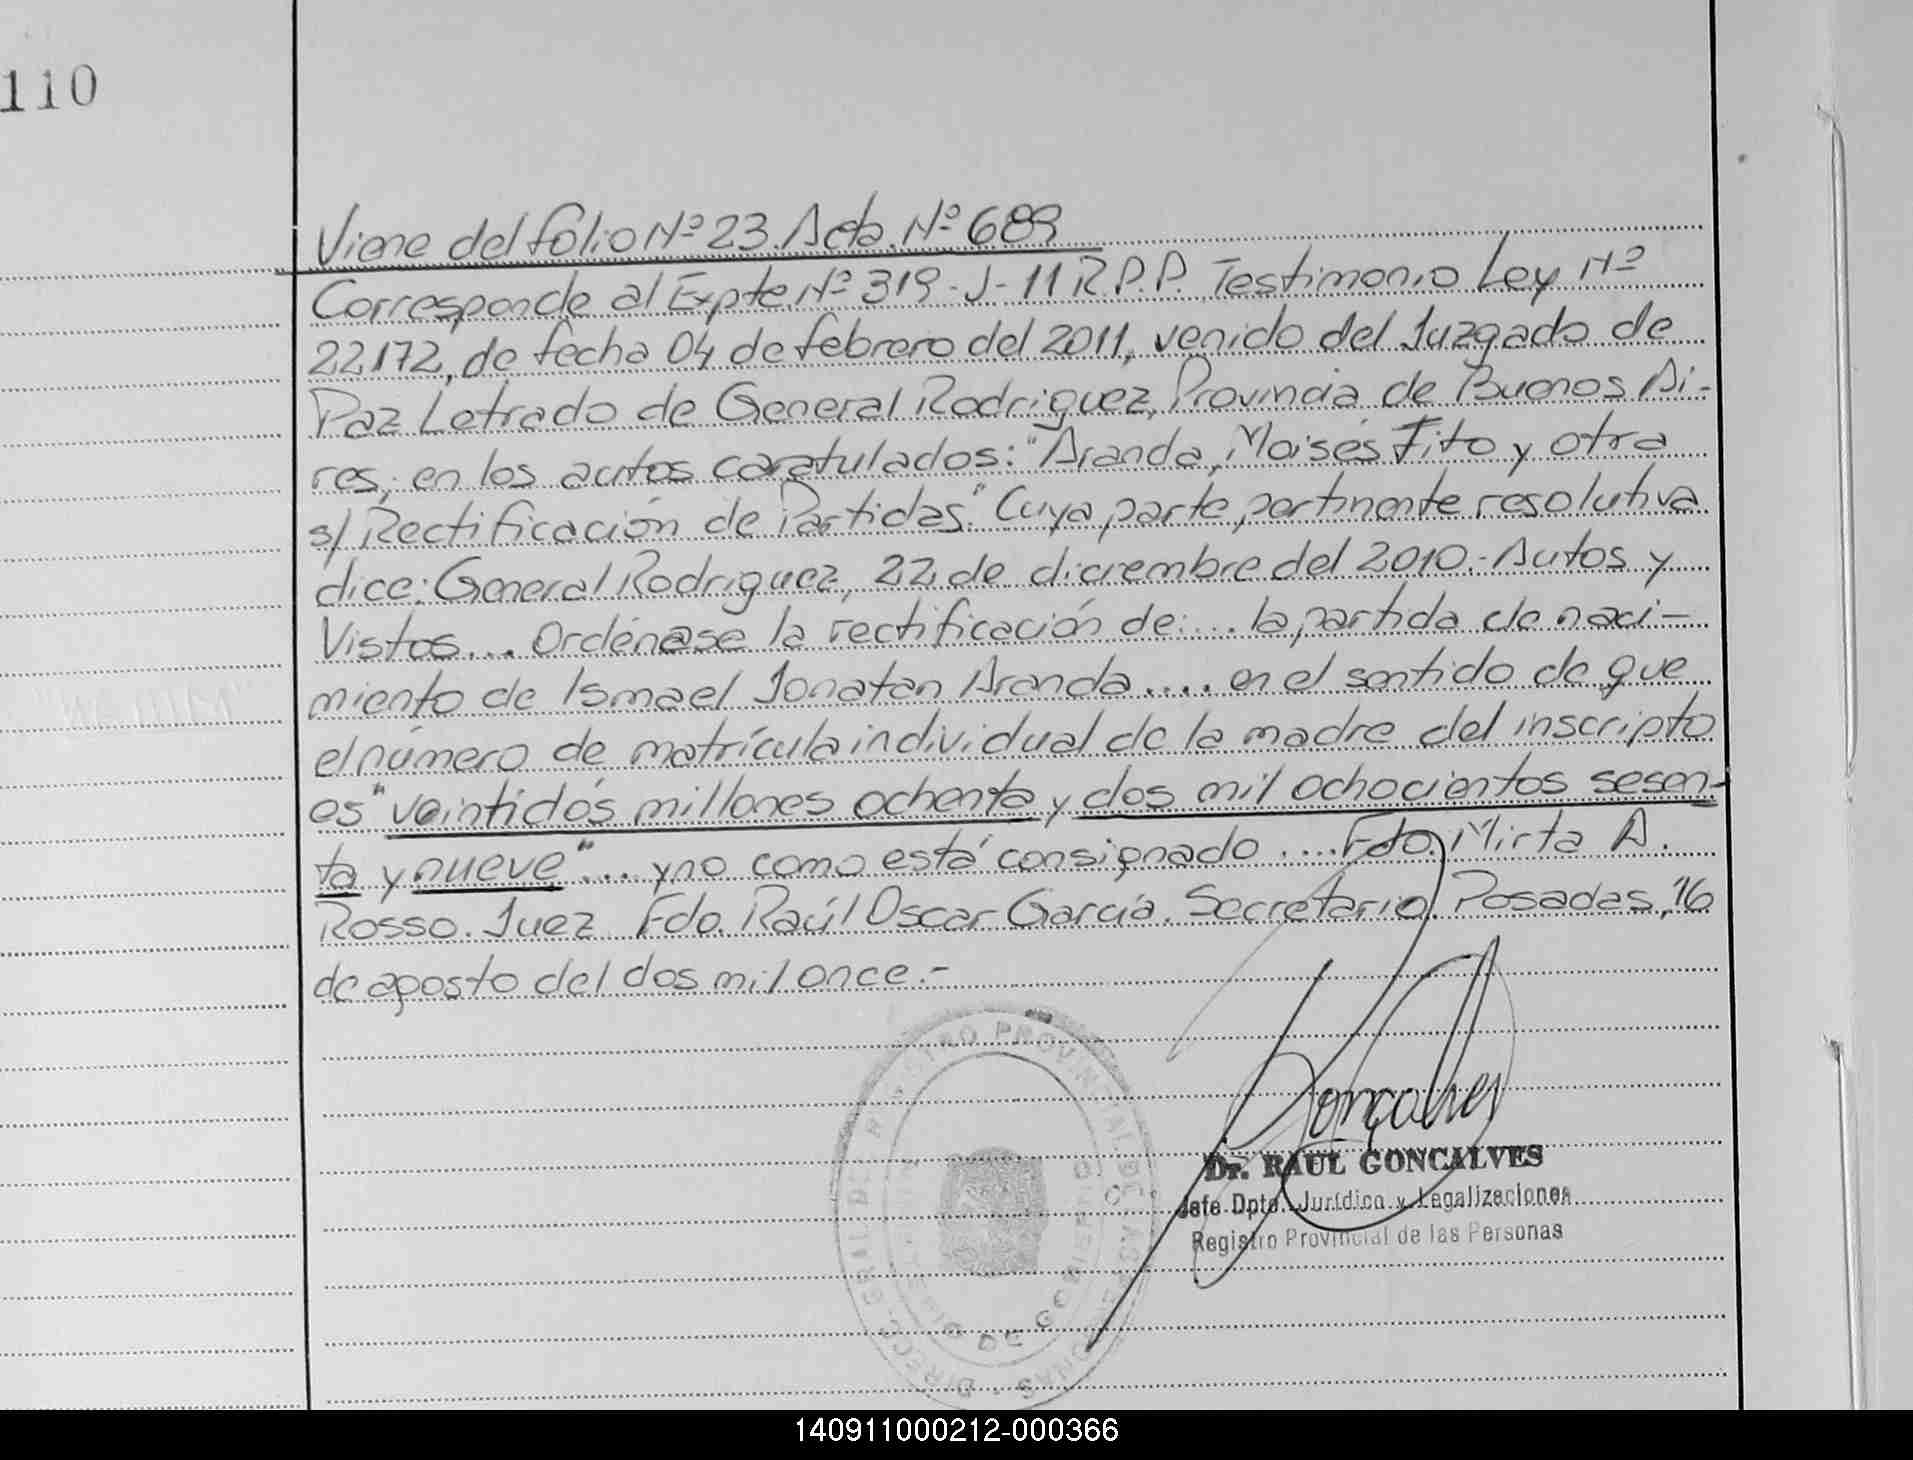 110
Viene del folio Nº 23. Acta. Nº 689
Corresponde al Expte Nº 319-J-11 R.P.P. Testimonio Ley Nº
22172, de fecha 04 de febrero del 2011, venido del Juzgado de
Paz Letrado de General Rodriguez, Provincia de Buenos Ai-
res, en los autos caratulados: "Aranda, Moisés Tito y otra
s/ Rectificación de Partidas." Cuya parte pertinente resolutiva
dice: General Rodriguez, 22 de diciembre del 2010.- Autos y
Vistos... Ordénase la rectificación de:... la partida de naci-
miento de Ismael Jonatan Aranda.... en el sentido de que
el número de matrícula individual de la madre del inscripto
es "veintidós millones ochenta y dos mil ochocientos sesen-
ta y nueve"... y no como está consignado .... Fdo. Mirta A.
Rosso. Juez Fdo. Raúl Oscar García. Secretario. Posadas, 16
de agosto del dos mil once.-
Goncalves
Dr. RAUL GONCALVES
Jefe Dpto. Jurídico y Legalizaciones
Registro Provincial de las Personas
REGISTRO PROVINCIAL DE LAS PERSONAS
140911000212-000366